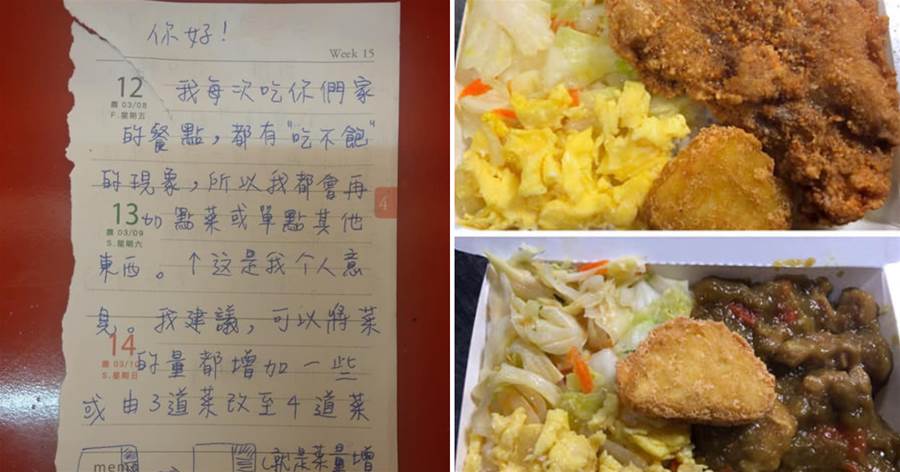 你好!
Week 15
12
農 03/08
F.星期五
我每次吃你們家
的餐點,都有"吃不飽"
的現象,所以我都會再
4
13
農 03/09
S.星期六
加點菜或單點其他
東西。↑这是我个人意
見。我建議,可以將菜
14
農 03/10
S.星期日
的量都增加一些
或由3道菜改至4道菜
menu
(就是菜量增